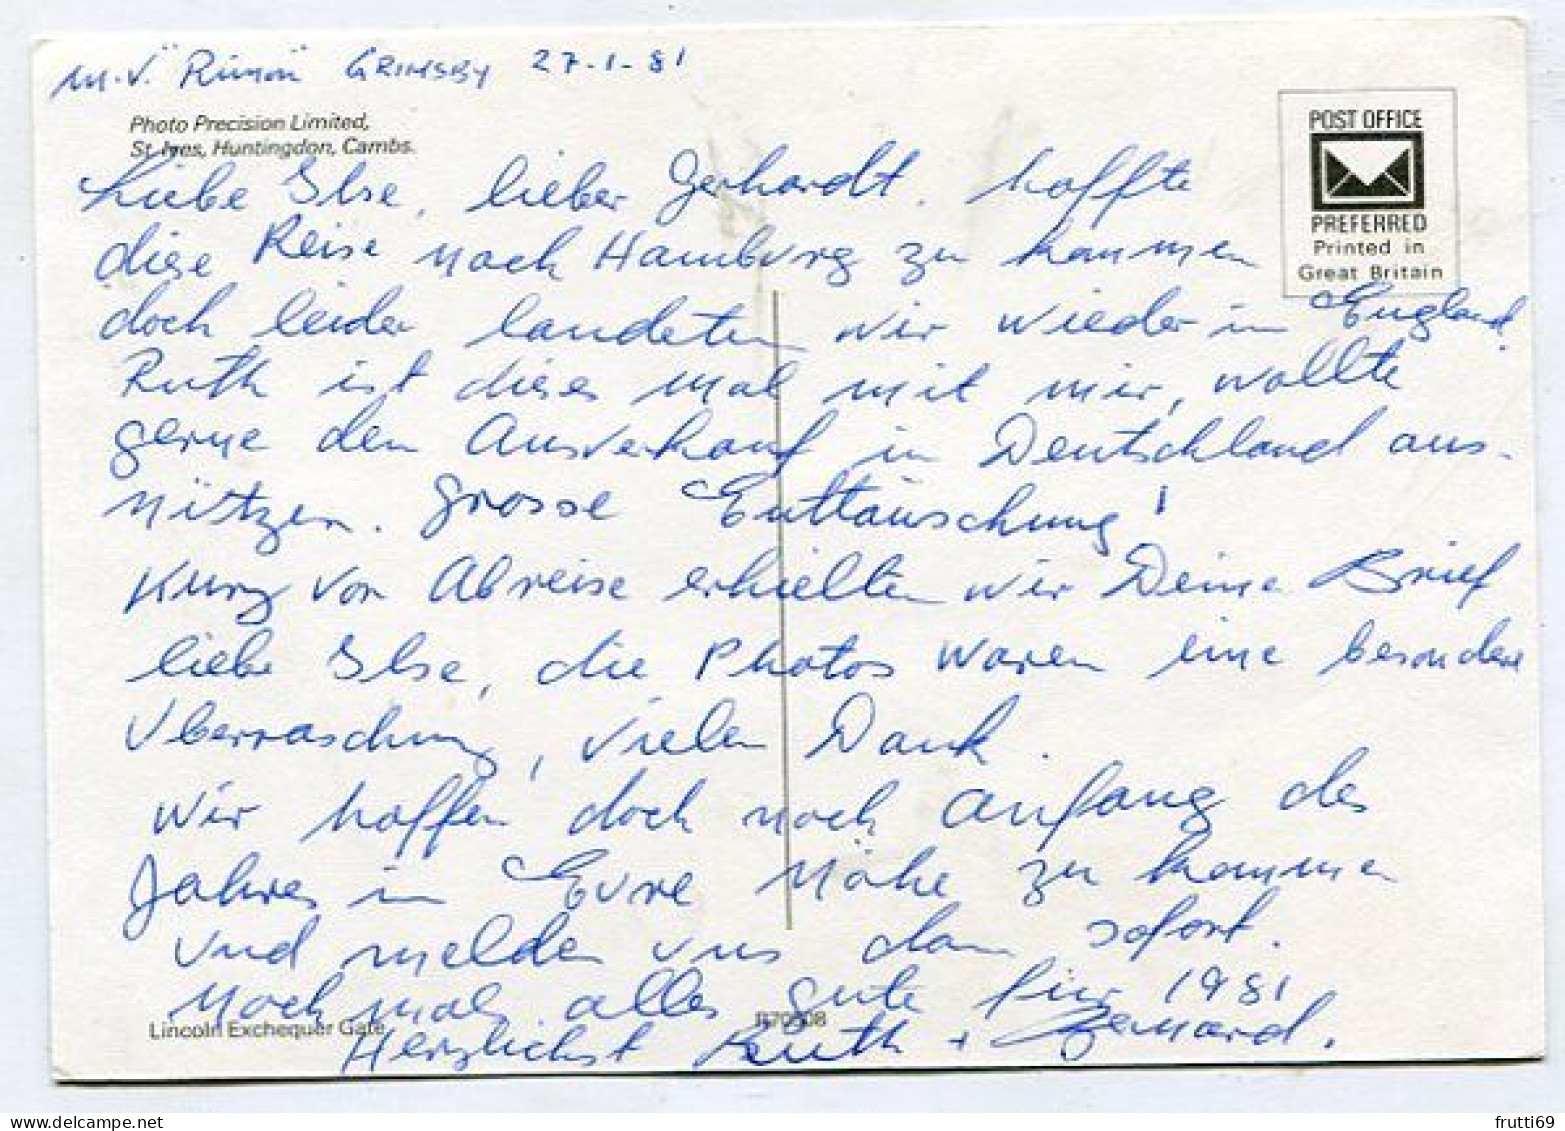 M.V. "Rimon" GRIMSBY 27-1-81
Photo Precision Limited,
St. Ives, Huntingdon, Cambs.
POST OFFICE
PREFERRED
Printed in
Great Britain
Liebe Ilse, lieber Gerhardt. hoffte
diese Reise nach Hamburg zu kommen
doch leider landeten wir wieder in England.
Ruth ist dieses mal mit mir, wollte
gerne den Ausverkauf in Deutschland aus-
nützen. Grosse Enttäuschung!
Kurz vor Abreise erhielten wir Deinen Brief
liebe Ilse, die Photos waren eine besondere
Überraschung, vielen Dank.
Wir hoffen doch noch anfang des
Jahres in Eure Nähe zu kommen
und melden uns dann sofort.
Nochmals alles gute für 1981
Lincoln Exchequer Gate
Herzlichst Ruth + Bernard.
frutti69